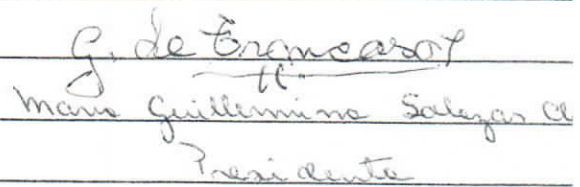 G. de Troncoso
Maria Guillermina Salazar A
Presidenta